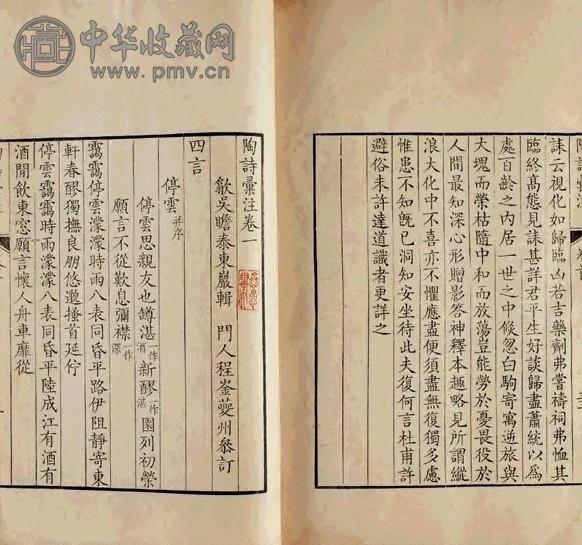 中华收藏网
www.pmv.cn
誄云視化如歸臨凶若吉藥劑弗嘗禱祠弗恤其
臨終高態見誄甚詳君平生好談歸盡蕭統以爲
處百齡之内居一世之中倏忽白駒寄寓逆旅與
大塊而榮枯隨中和而放蕩豈能勞於憂畏役於
人間最知深心形贈影答神釋本趣略見所謂縱
浪大化中不喜亦不懼應盡便須盡無復獨多慮
惟患不知旣已洞知安坐待此夫復何言杜甫許
避俗未許達道識者更詳之
陶詩彙注卷一
歙吳瞻泰東巖輯 門人程崟夔州叅訂
四言
停雲 并序
停雲思親友也罇湛一作酒新醪一作湛園列初榮
願言不從歎息彌襟一作深
靄靄停雲濛濛時雨八表同昏平路伊阻靜寄東
軒春醪獨撫良朋悠邈搔首延佇
停雲靄靄時雨濛濛八表同昏平陸成江有酒有
酒閒飲東窓願言懷人舟車靡從